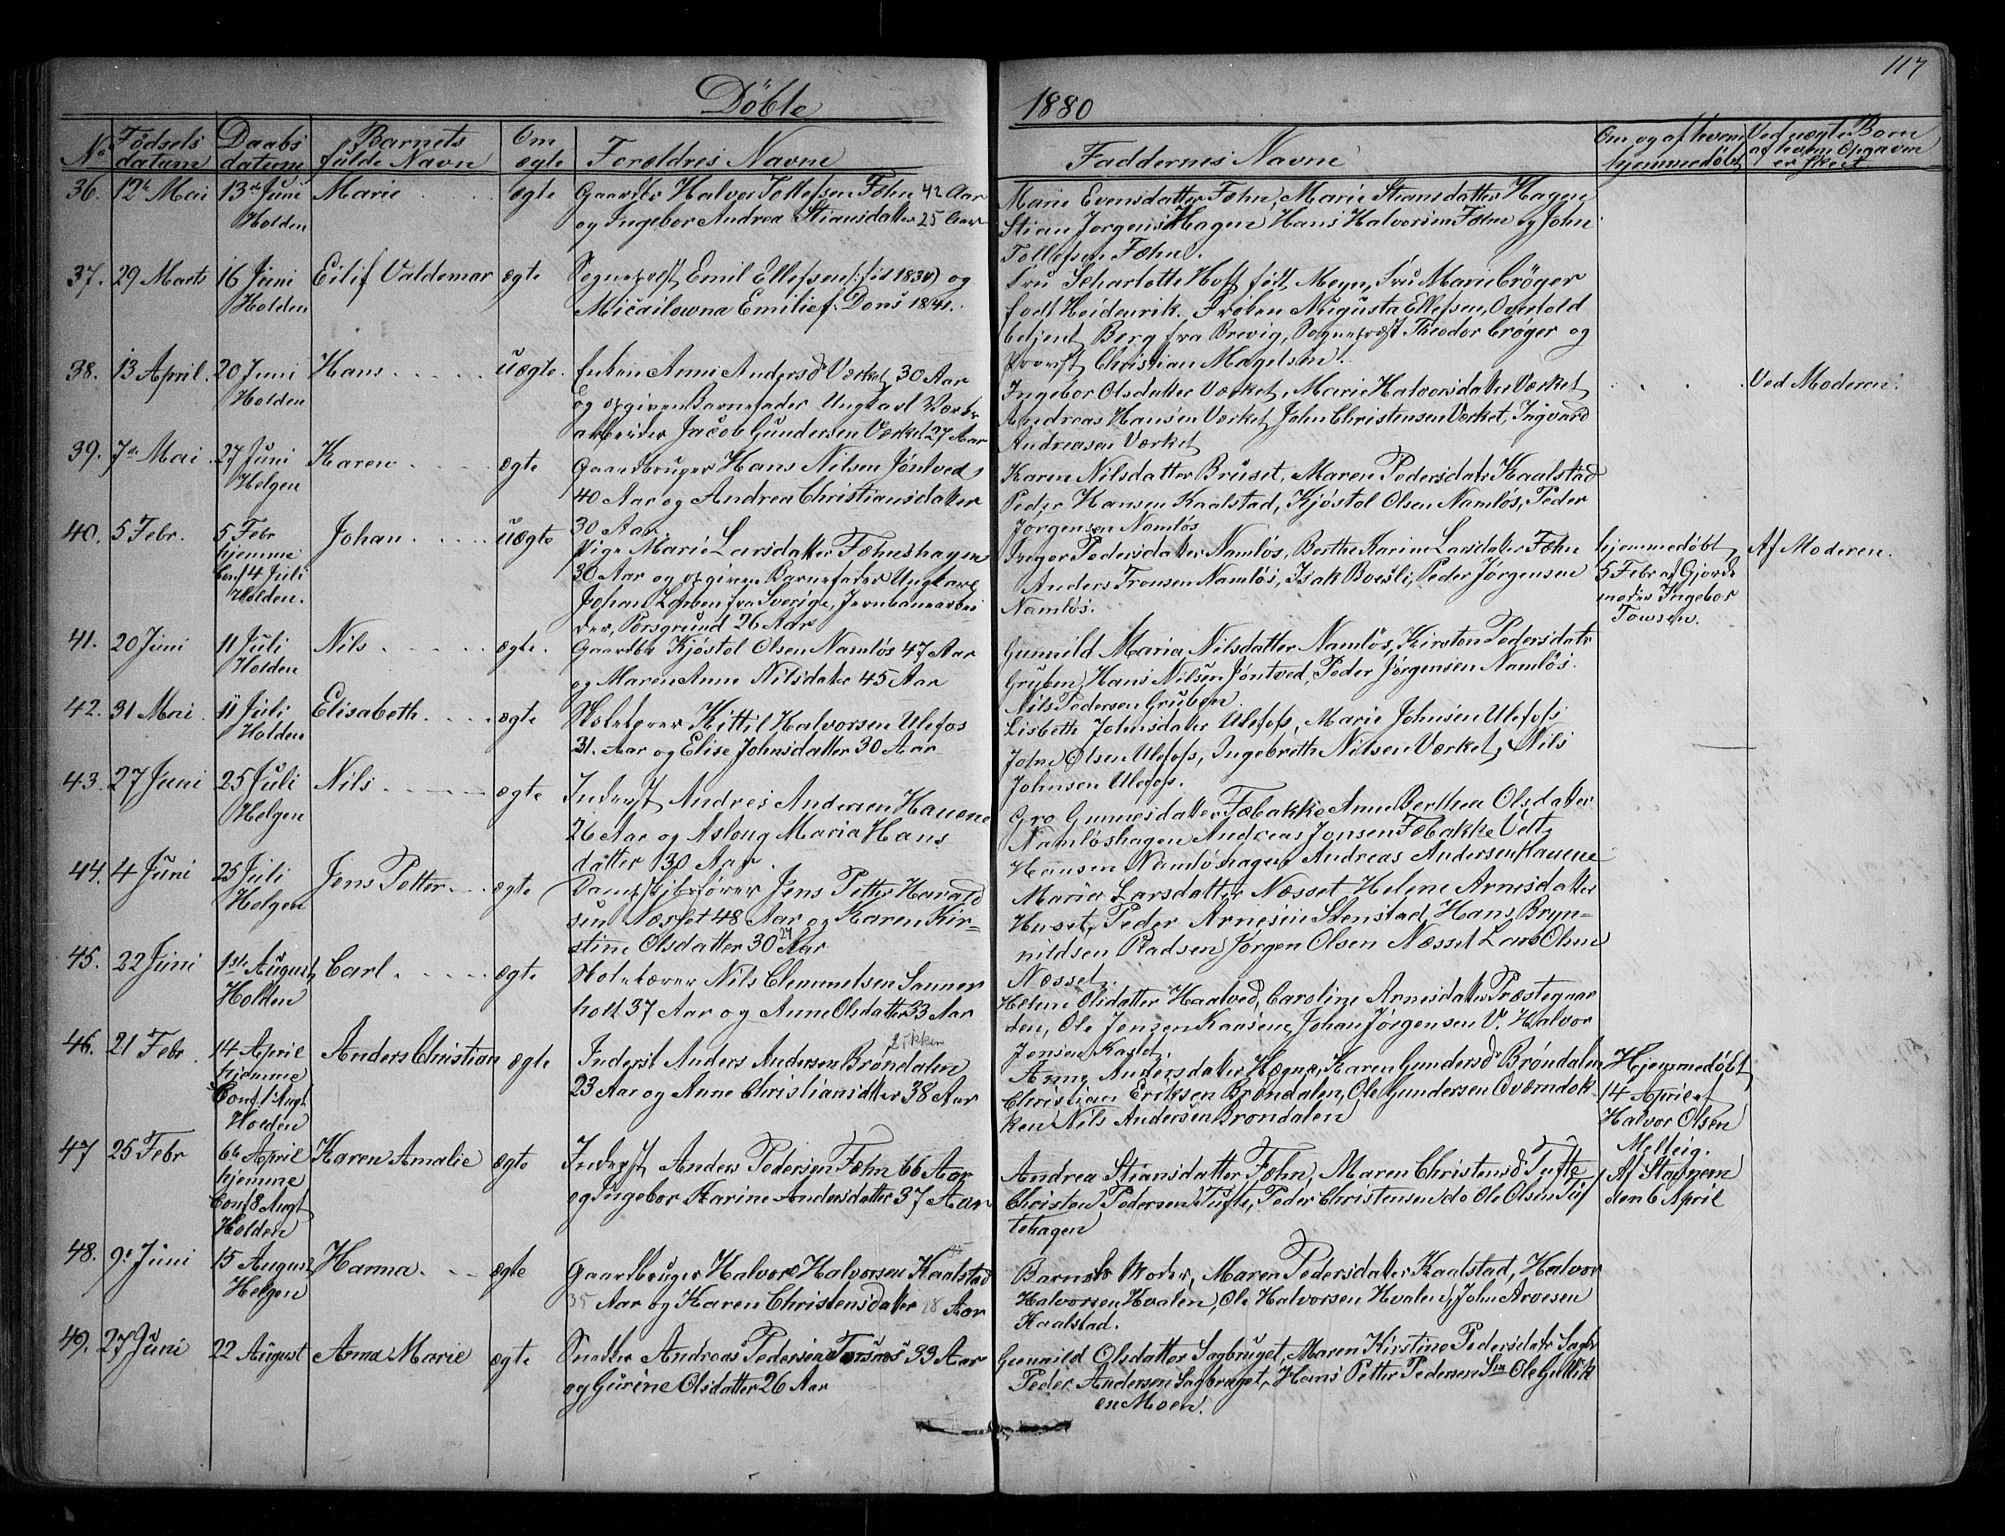 117
Døbte
1880
No
Fødsels datum
Daabs datum
Barnets fulde Navn
Om ægte
Forældres Navne
Faddernes Navne
Om og af hvem hjemmedøbt
Ved uægte Børn af hvem Opgaven er skeet
36. 12te Mai 13de Juni Marie ægte Gaardbr Halvor Tollefsen Fæhn 42 Aar
Holden og Ingebor Andrea Stiansdatter 25 Aar
Marie Evensdatter Fæhn, Marie Stiansdatter Hagen
Stian Jørgens Hagen Hans Halvorsen Fæhn og John
Tollefsen Fæhn.
37. 29 Marts 16 Juni Eilif Valdemar ægte Sognepræst Emil Ellefsen (: fød 1830) og
Holden Micailowna Emilie f. Dons 1841.
Fru Scharlotte Hoff født Meyn, Fru Marie Crøger
født Heidenrik. Frøken Augusta Ellefsen, Overtold
betjent Berg fra Brevig, Sognepræst Theodor Crøger og
Provst Christian Magelsen.
38. 13 April. 20 Juni Hans uægte. Enken Anne Andersd Værket 30 Aar
Holden og opgiven Barnefader Ungkarl Værks
arbeider Jacob Gundersen Værket 27 Aar
Ingebor Olsdatter Værket, Marie Halvorsdatter Værket
Andreas Hansen Værket John Christensen Værket, Ingvard
Andreasen Værket
Ved Moderen.
39. 7de Mai 27 Juni Karen ægte Gaardbruger Hans Nilsen Jøntved
Helgen 40 Aar og Andrea Christiansdatter
30 Aar
Karen Nilsdatter Bruset, Maren Pedersdatr Kaalstad
Peder Hansen Kaalstad, Kjøstol Olsen Namløs, Peder
Jørgensen Namløs
40. 5 Febr. 5 Febr Johan uægte Pige Marie Larsdatter Fæhnshagen
hjemme 30 Aar og opgiven Barnefader Ungkarl
Conf 4 Juli Johan Larsen fra Sverige, Jernbanearbei
Holden. der, Porsgrund 26 Aar
Inger Pedersdatter Namløs, Berthe Karine Larsdatter Fæhn
Anders Tronsen Namløs, Isak Boesli, Peder Jørgensen
Namløs.
hjemmedøbt
5 Febr af Gjorde
moder Ingebor
Towsen.
Af Moderen.
41. 20 Juni 11 Juli Nils ægte. Gaardbr Kjøstol Olsen Namløs 47 Aar
Holden og Maren Anne Nilsdatter 45 Aar
Gunnild Maria Nilsdatter Namløs, Kirsten Pedersdatr
Gruben, Hans Nilsen Jøntved, Peder Jørgensen Namløs.
Nils Pedersen Gruben.
42. 31 Mai 11 Juli Elisabeth ægte Kittil Halvorsen Ulefos
Holden 31. Aar og Elise Johnsdatter 30 Aar
Lisbeth Johnsdatter Ulefoss, Marie Johnsen Ulefoss
John Olsen Ulefoss, Ingebreth Nilsen Værket, Nils
Johnsen Ulefoss.
43. 27 Juni 25 Juli Nils ægte Inderst Andres Andersen Hauene
Helgen 26 Aar og Asloug Maria Hans
datter 30 Aar.
Gro Gunnesdatter Fæbakke Anne Berthea Olsdatter
Namløshagen Andreas Jonsen Fæbakke Vett
Hansen Namløshagen Andreas Andersen Hauene
44. 4 Juni 25 Juli Jens Petter ægte Dampskibsfører Jens Petter Harald
Helgen sen Næsset 48 Aar og Karen Kir-
stine Olsdatter 30 Aar
Maria Larsdatter Næsset Helene Arnesdatter
Huset, Peder Arnesen Stenstad, Hans Bryn-
nildsen Pladsen Jørgen Olsen Næsset Lars Olsen
Næsset.
45. 22 Juni 1ste August Carl ægte Nils Clemmetsen Sanner
Holden holt 37 Aar og Anne Olsdatter 33 Aar
Helene Olsdatter Haalved, Caroline Arnesdatter Præstegaar
den, Ole Jensen Kaasene, Johan Jørgensen V. Halvor
Jensen Kastet.
46. 21 Febr. 14 April Anders Christian ægte Inderst Anders Andersen Brøndalen
hjemme 23 Aar og Anne Christiansdtter 38 Aar
Conf 1 Augt
Holden
Anne Andersdatter Hægna, Karen Gundersd Brøndalen
Christian Eriksen Brøndalen, Ole Gundersen Qværndok
ken Nils Andersen Brøndalen
Hjemmedøbt
14 April af
Halvor Olsen
Melteig.
47 25 Febr 6te April Karen Amalie ægte Inderst Anders Pedersen Fæhn 66 Aar
hjemme og Ingebor Karine Andersdatter 37 Aar
Conf 8 Augt
Holden
Andrea Stiansdatter Fæhn, Maren Christensd Tufte
Christen Pedersen Tufte, Peder Christensen do Ole Olsen Tuf
tehagen
Af Samme
den 6 April
48. 9. Juni 15 August Hanna ægte Gaardbruger Halvor Halvorsen Kaalstad
Helgen 35 Aar og Karen Christensdatter 28 Aar
Barnets Moder, Maren Pedersdatter Kaalstad, Halvor
Halvorsen Hvalen, Ole Halvorsen Hvalen, John Arvesen
Kaalstad.
49. 27 Juni 22 August Anna Marie ægte Snedker Andreas Pedersen 33 Aar
og Gurine Olsdatter 26 Aar
Gunnild Olsdatter Sagbruget, Maren Kirstine Pedersdatr Sagbr
Peder Andersen Sagbruget, Hans Petter Pedersen Ole Gulliks
en Moen.